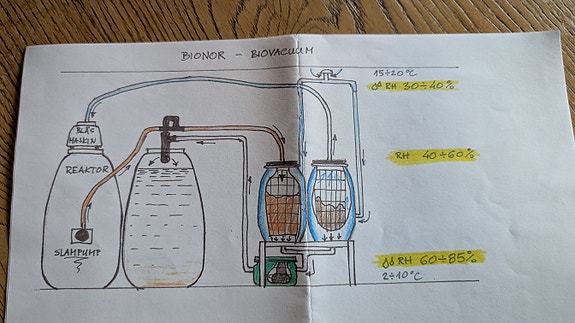 BIONOR - BIOVACUUM
15÷20°C
RH 30÷40%
BLÅS
MASKIN
REAKTOR
RH 40÷60%
SLAMPUMP
RH 60÷85%
2÷10°C